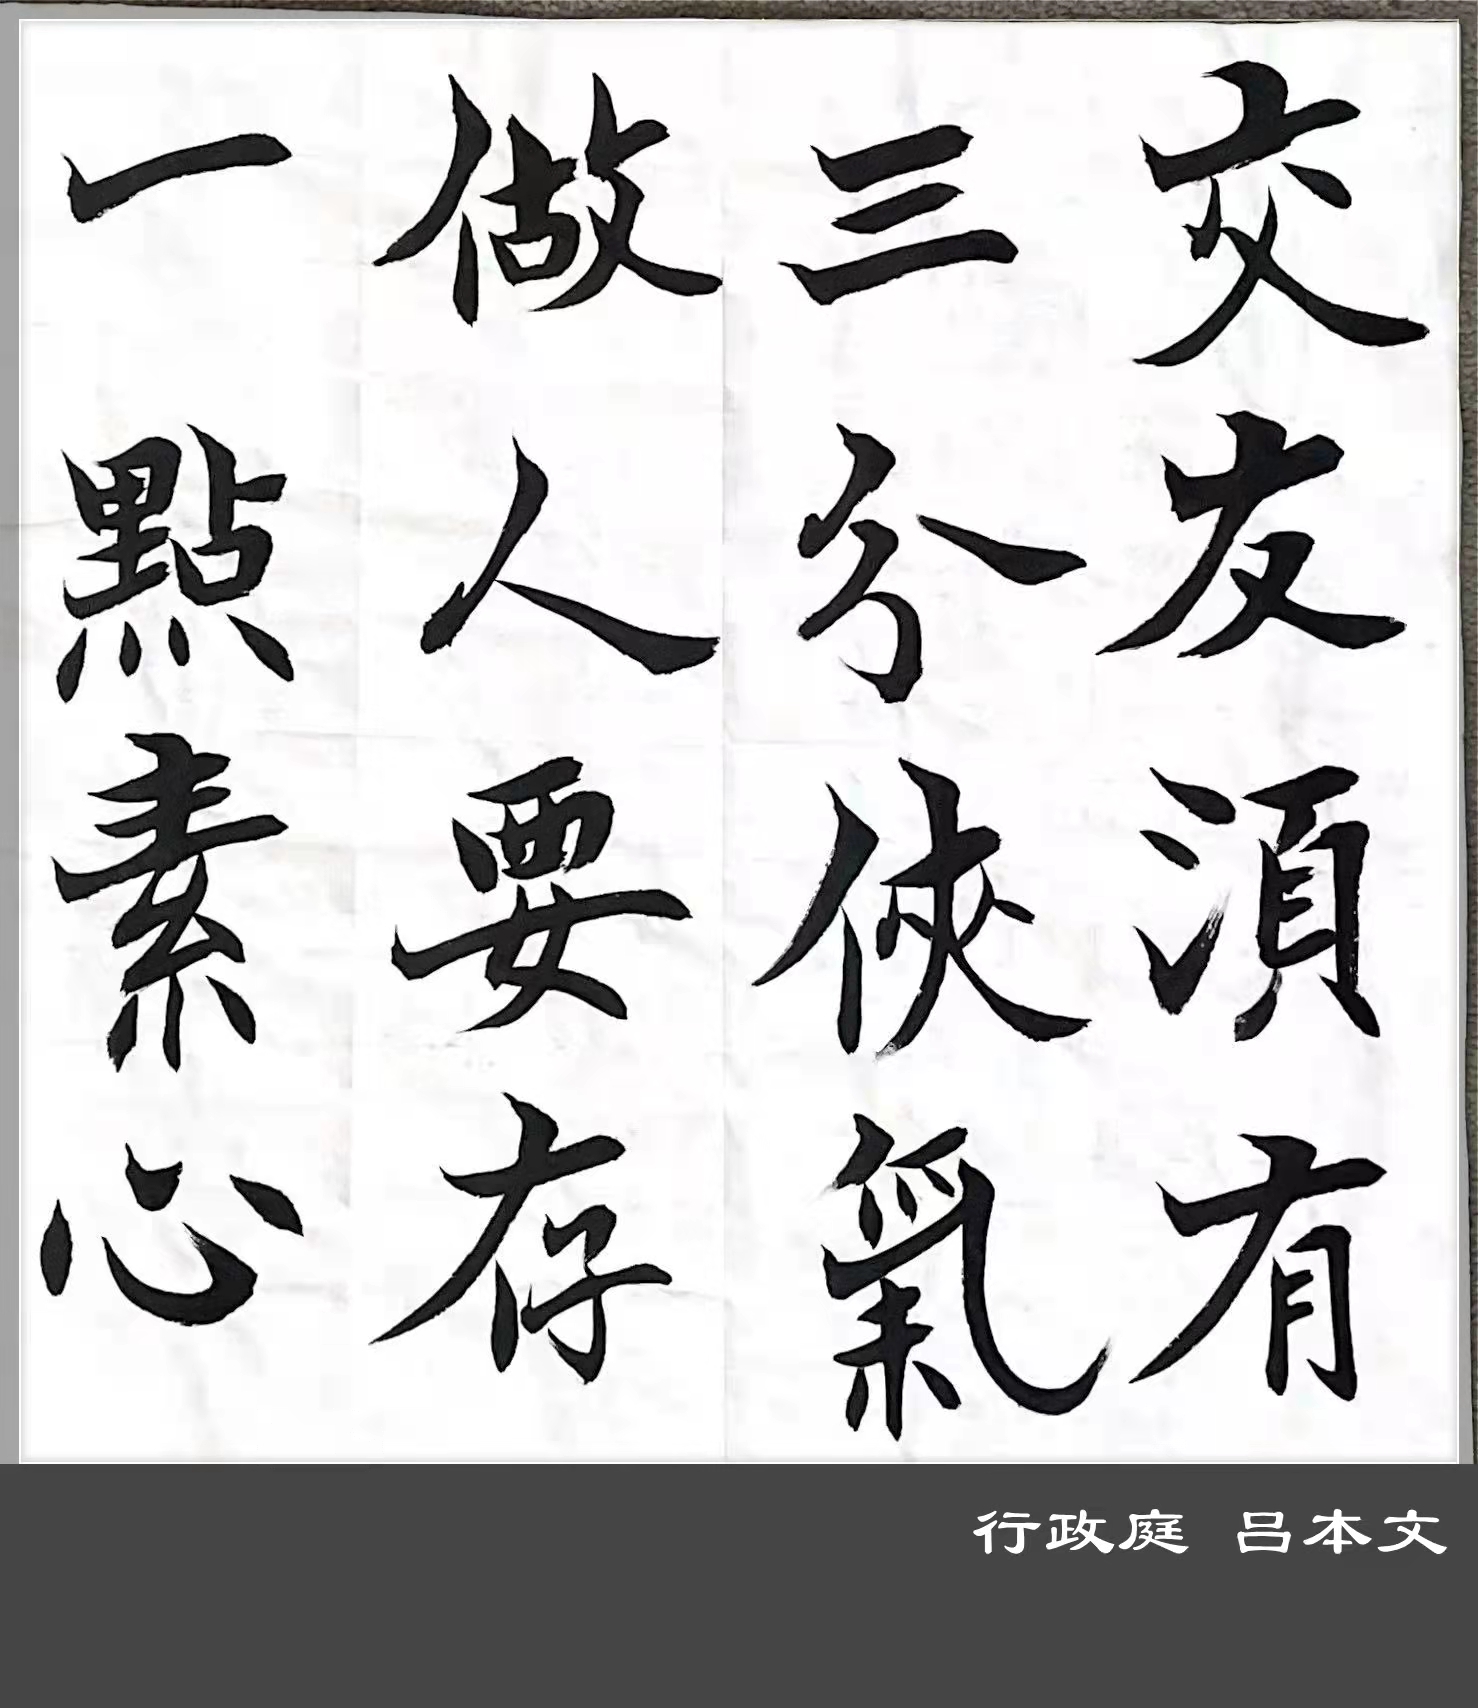 交友須有
三分俠氣
做人要存
一點素心
行政庭 吕本文